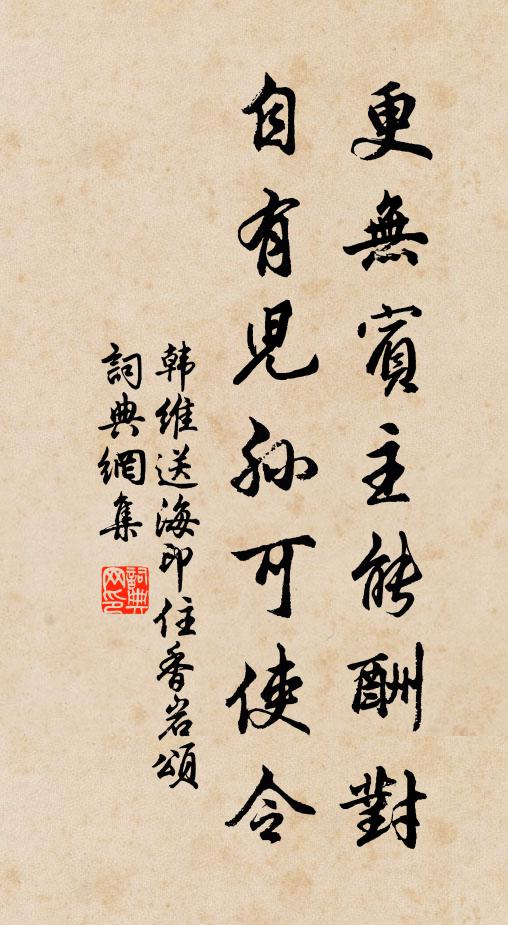 更無賓主能酬對
自有児孫可使令
韩維送海印住香岩頌
詞典網集
詞典网印